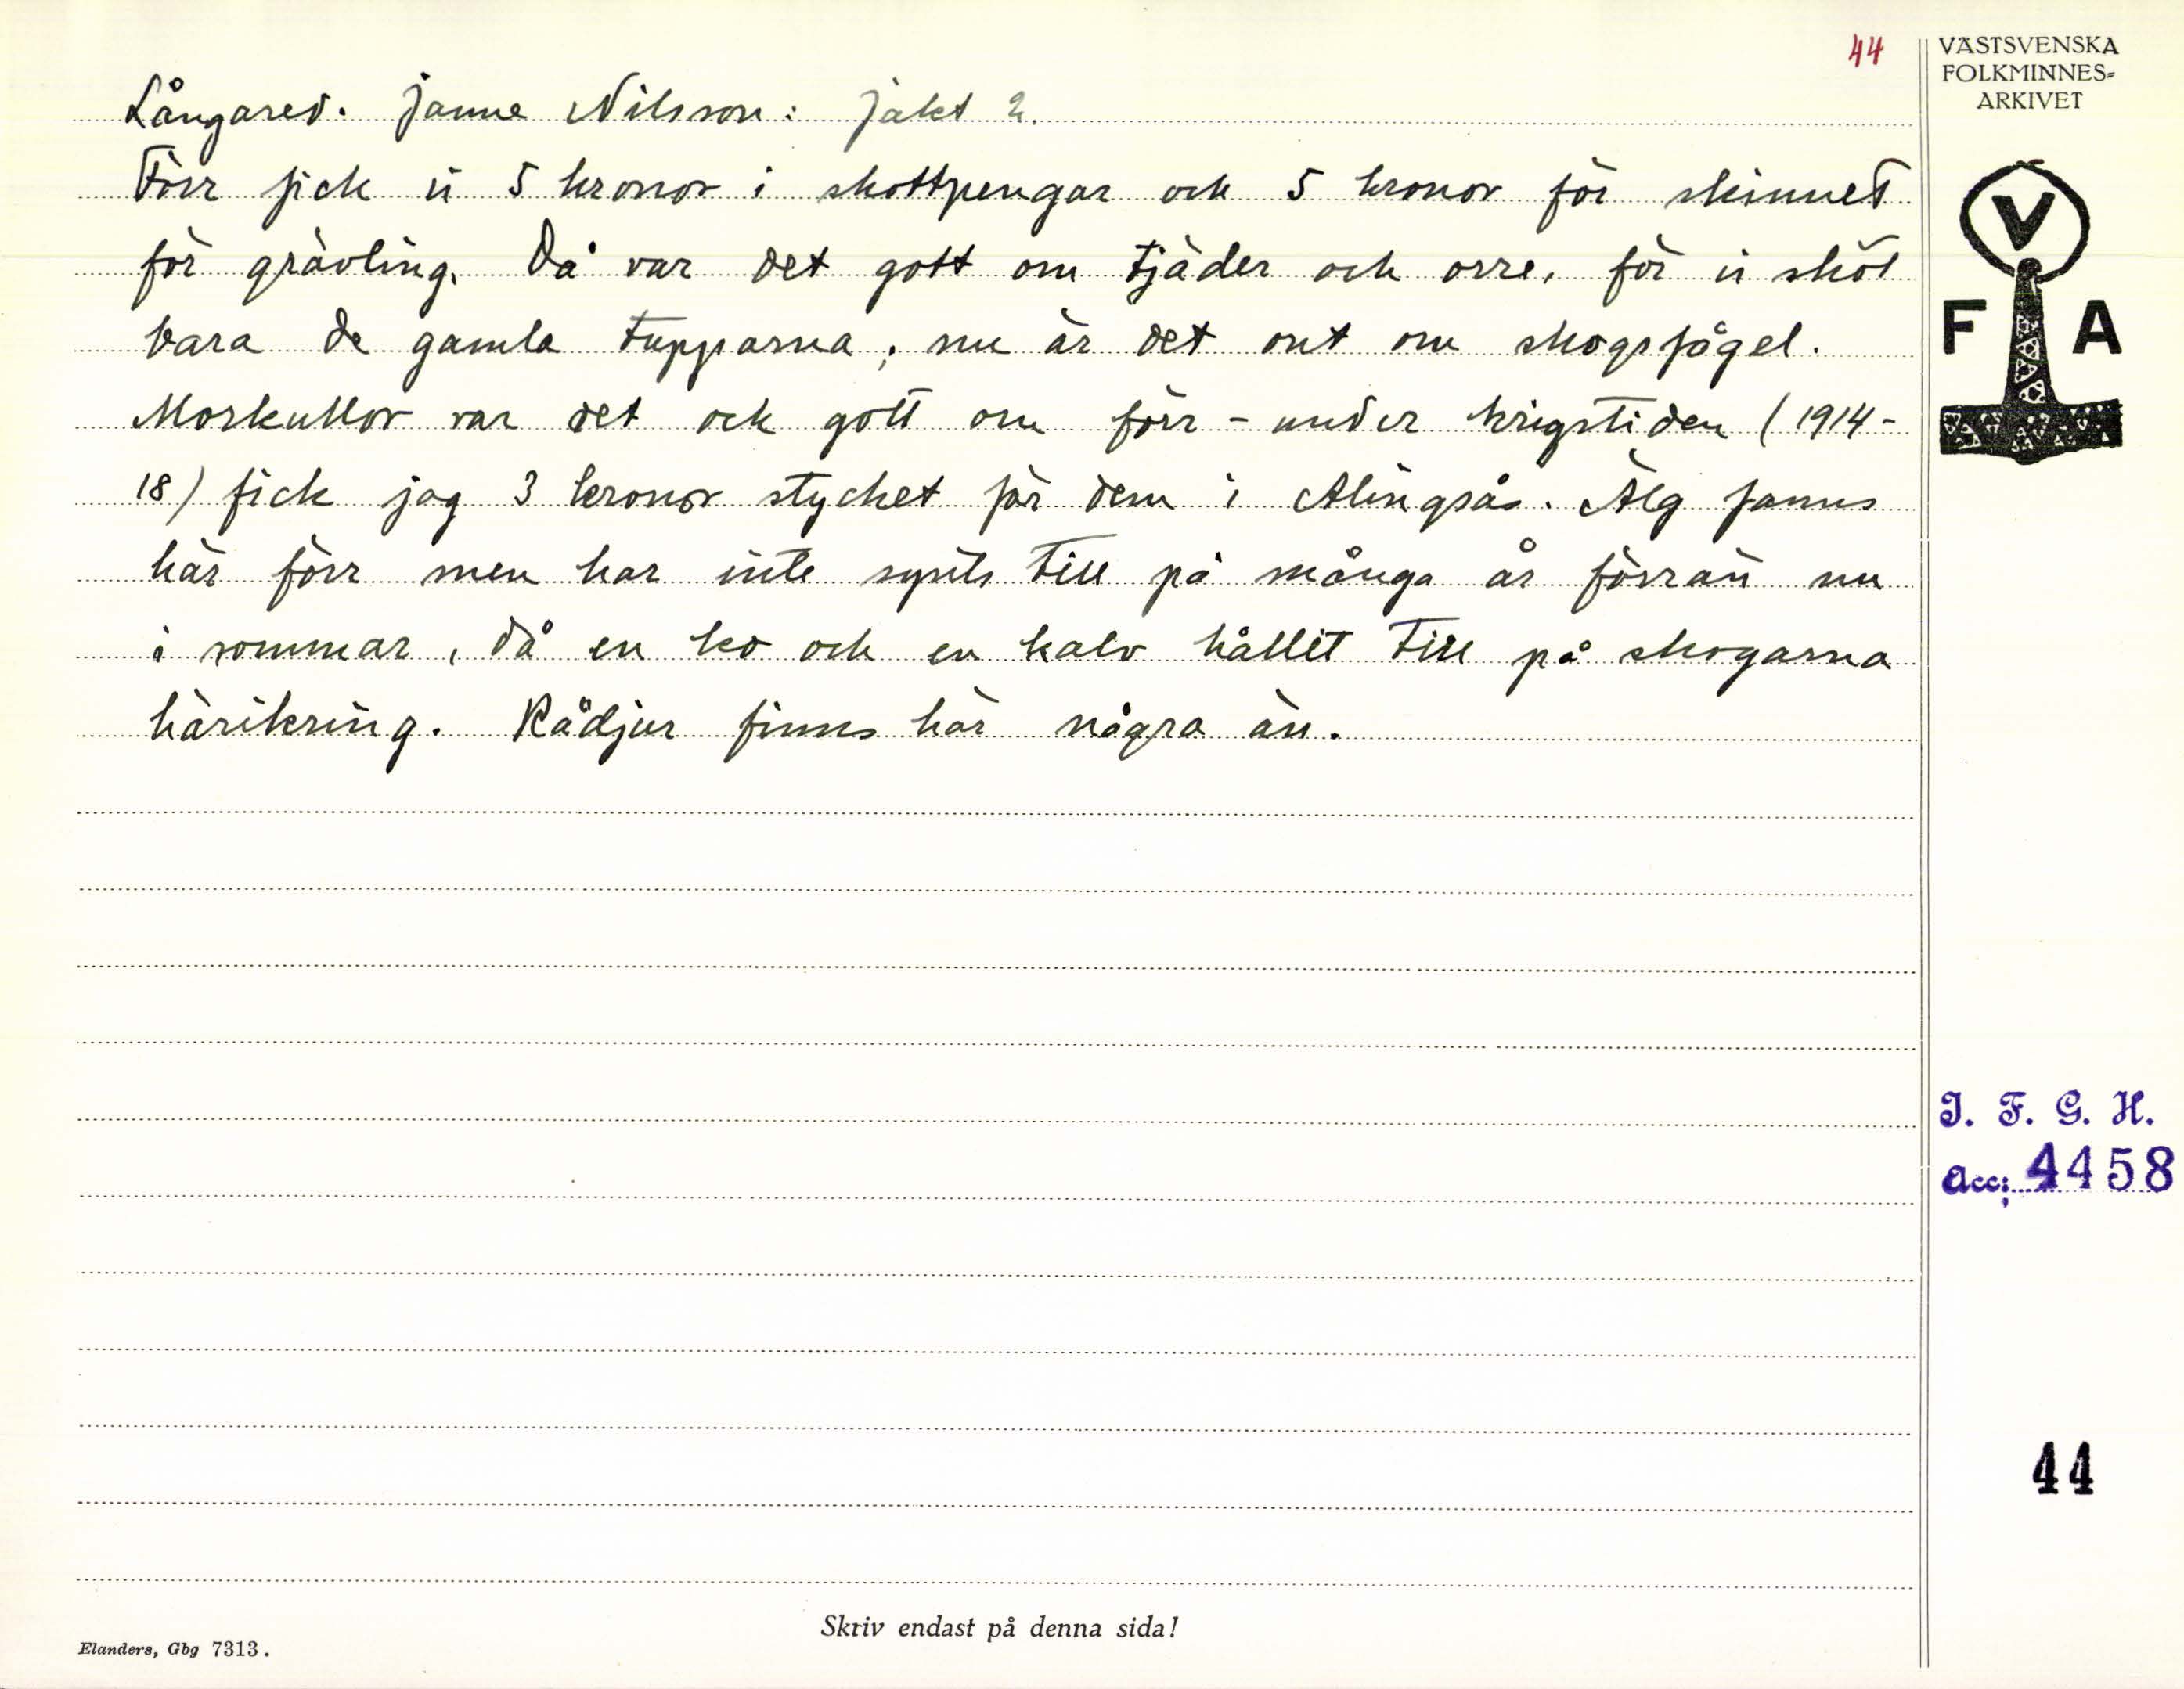 44
Långared. Janne Nilsson: Jakt 2.
Förr fick vi 5 kronor i skottpengar och 5 kronor för skinnet
för grävling. Då var det gott om tjäder och orre, för vi sköt
bara de gamla tupparna; nu är det ont om skogsfågel.
Morkullor var det ock gott om förr - under krigstiden (1914-
18) fick jag 3 kronor stycket för dem i Alingsås. Älg fanns
här förr men har inte synts till på många år förrän nu
i sommar, då en ko och en kalv hållit till på skogarna
häromkring. Rådjur finns här några än.
VÄSTSVENSKA
FOLKMINNES=
ARKIVET
V
F A
I. F. G. H.
Acc: 4458
44
Skriv endast på denna sida!
Elanders, Gbg 7313.